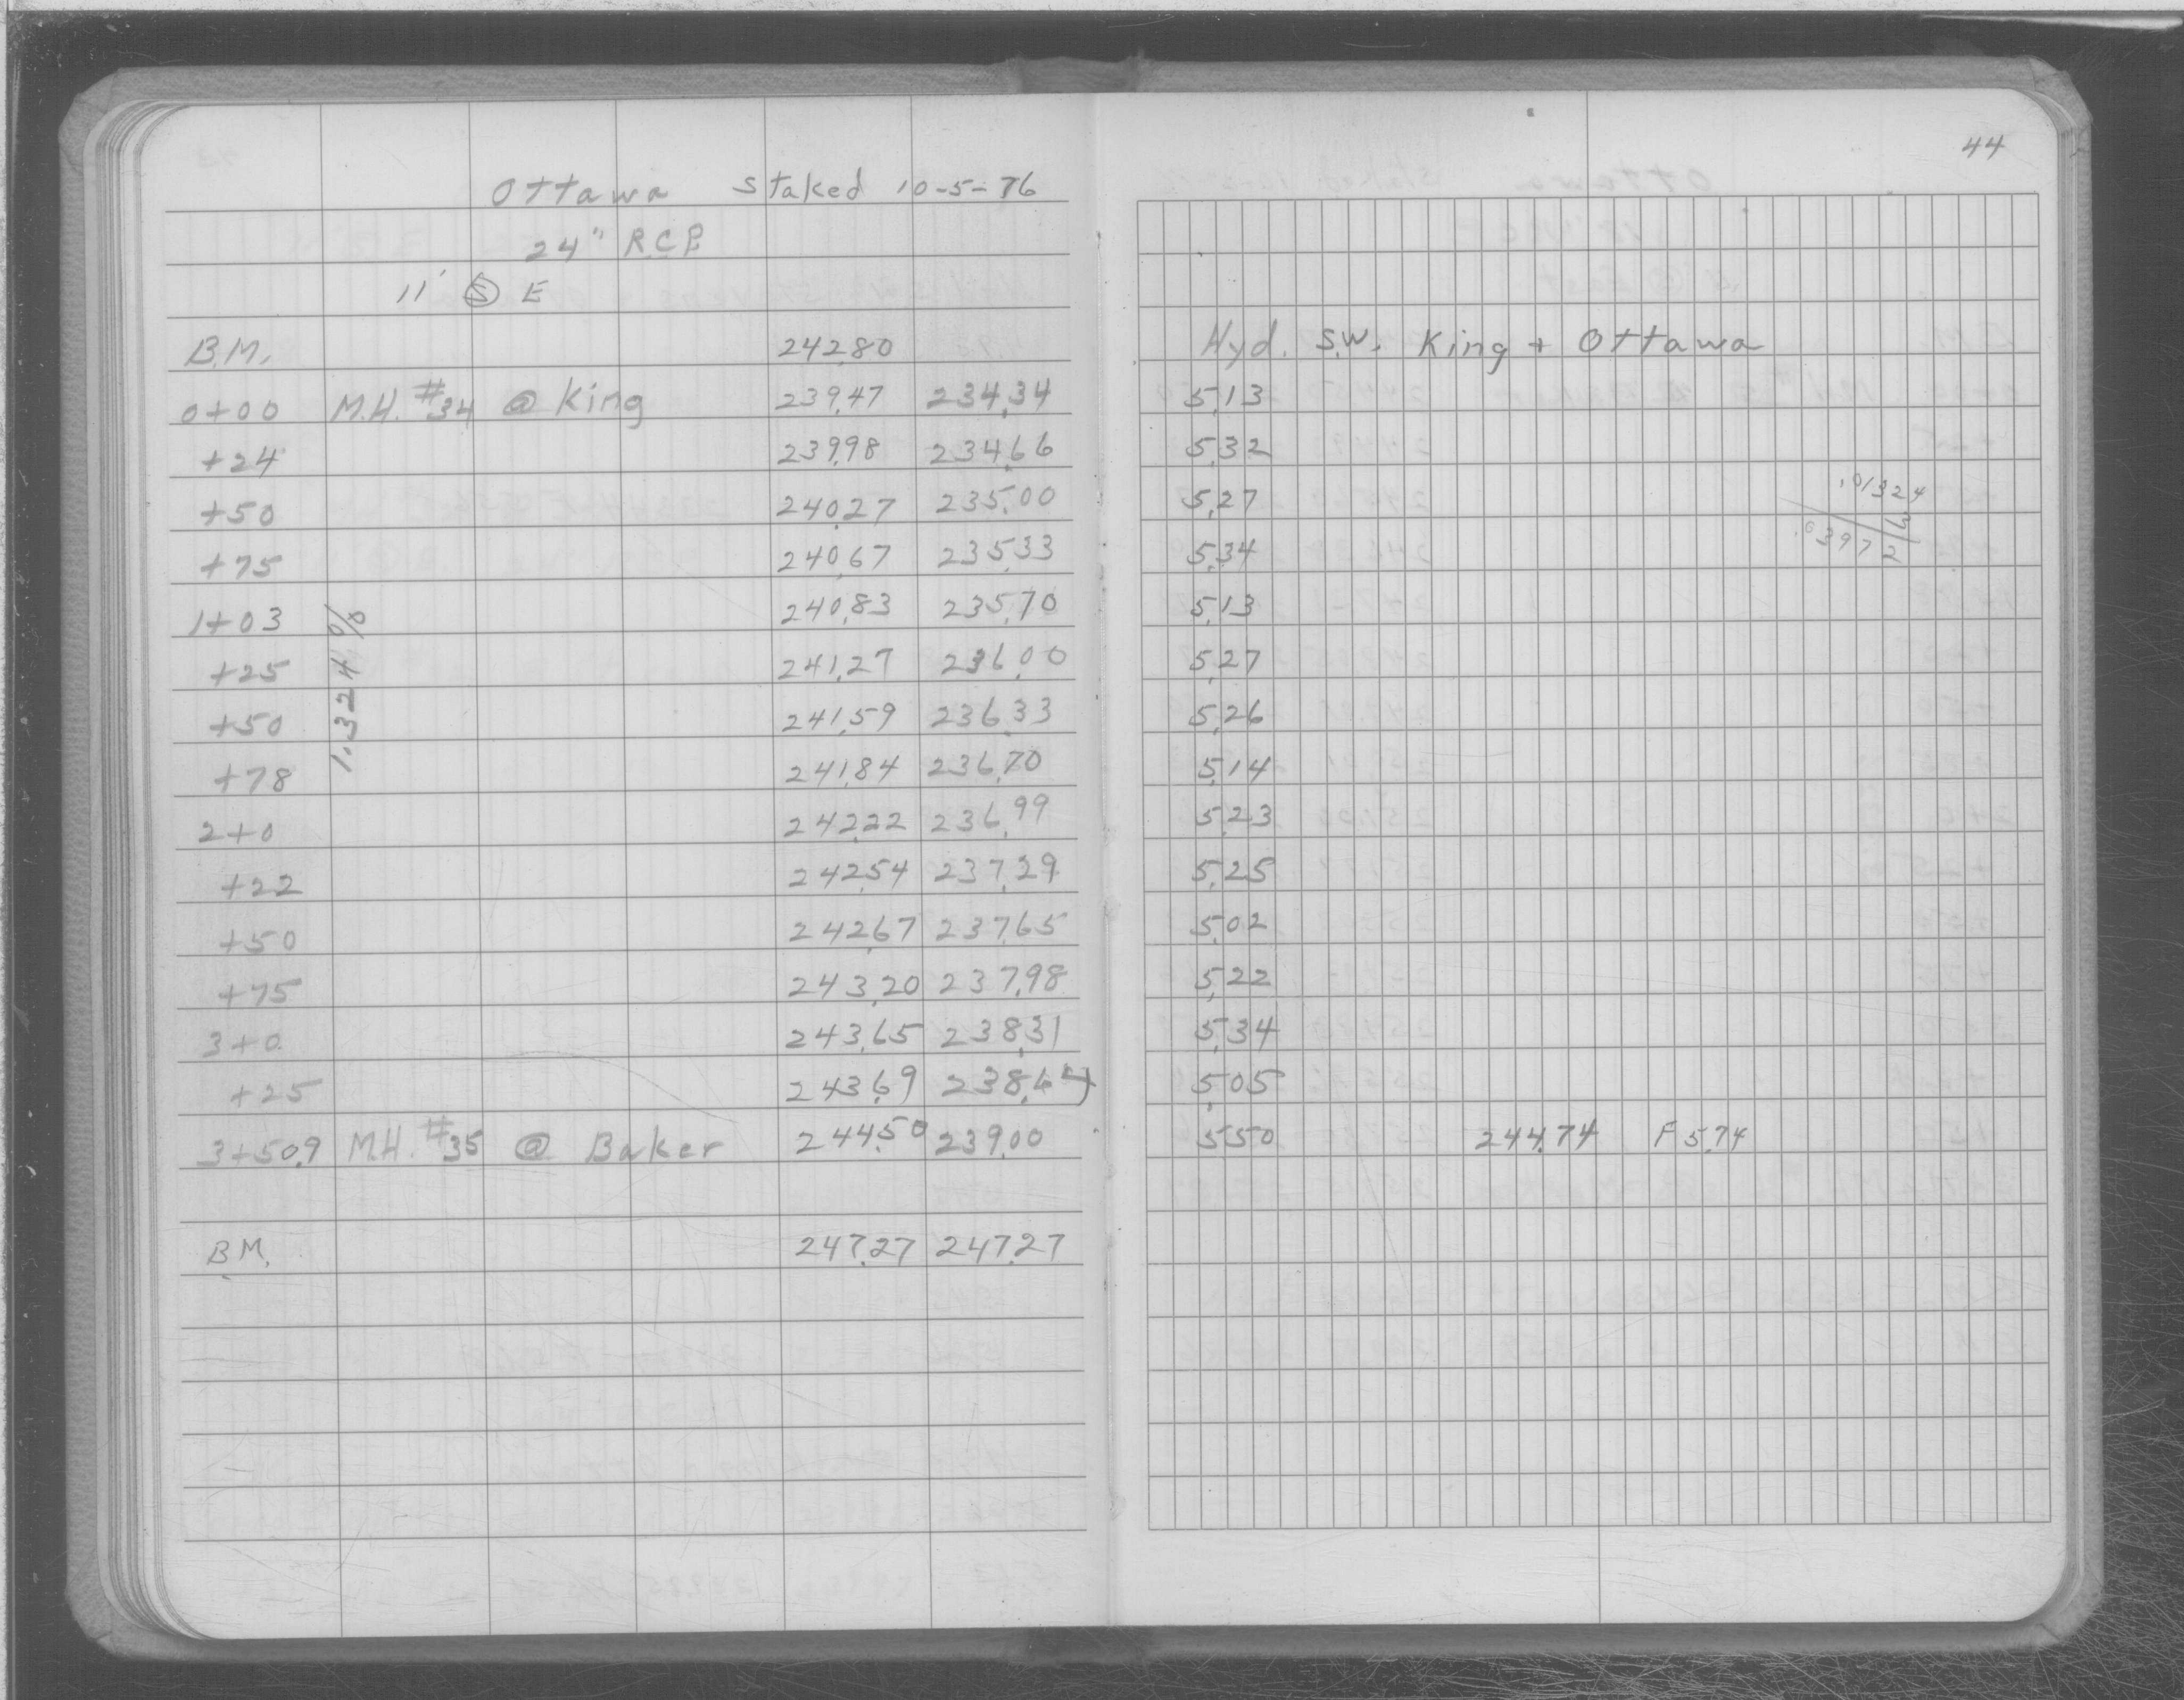 Ottawa Staked 10-5-76
24" R.C.P.
11' Ⓢ E
B.M. 242.80
0+00 M.H. #34 @ King 239.47 234.34
+24 239.98 234.66
+50 240.27 235.00
+75 240.67 235.33
1+03 240.83 235.70
+25 241.27 236.00
+50 241.59 236.33
+78 241.84 236.70
2+0 242.22 236.99
+22 242.54 237.29
+50 242.67 237.65
+75 243.20 237.98
3+0 243.65 238.31
+25 243.69 238.64
3+50.9 M.H. #35 @ Baker 244.50 239.00
B.M. 247.27 247.27
1.324 %
44
Hyd. S.W. King + Ottawa
5.13
5.32
5.27
5.34
5.13
5.27
5.26
5.14
5.23
5.25
5.02
5.22
5.34
5.05
5.50 244.74 F 5.74
.01324
.03972 / 3